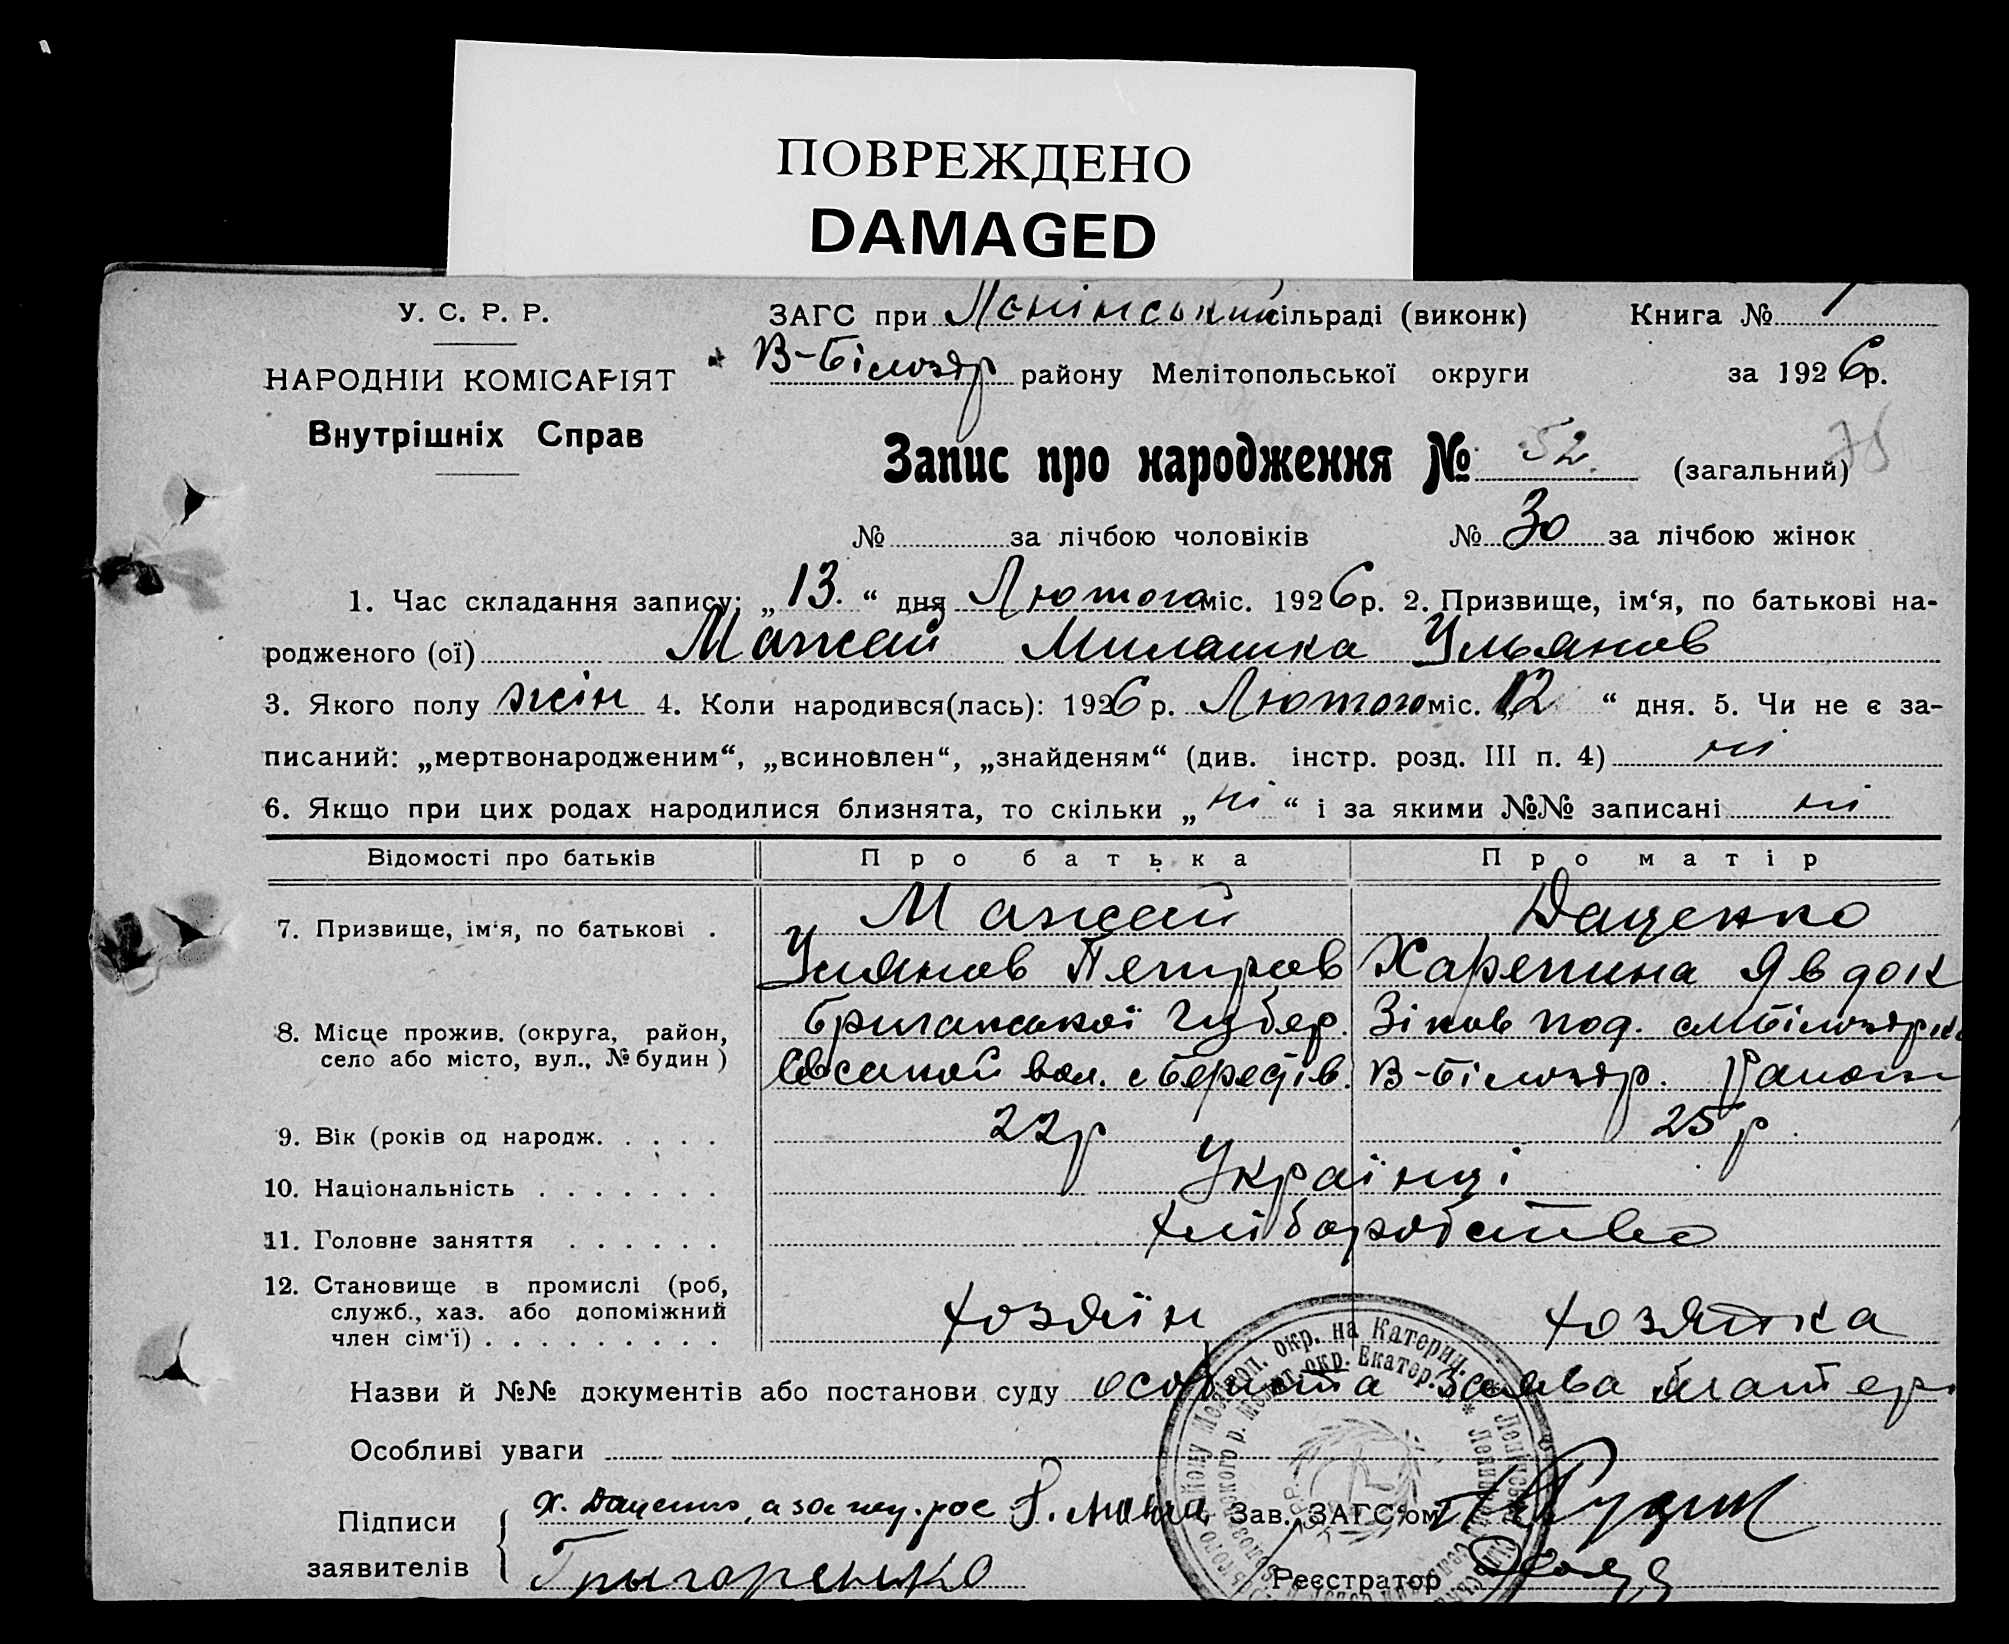 ПОВРЕЖДЕНО
DAMAGED
У. С. Р. Р.
ЗАГС при Ленінський сільраді (виконк) Книга № 1
НАРОДНІЙ КОМІСАРІЯТ
В-Білозер району Мелітопольської округи за 1926 р.
Внутрішніх Справ
Запис про народження № 52. (загальний)
№ за лічбою чоловіків № 30 за лічбою жінок
1. Час складання запису: „13. “ дня Лютого міс. 1926 р. 2. Призвище, ім‘я, по батькові на-
родженого (ої) Мажей Милашка Ульянов
3. Якого полу жін 4. Коли народився(лась): 1926 р. Лютого міс. „12 “ дня. 5. Чи не є за-
писаний: „мертвонародженим“, „всиновлен“, „знайденям“ (див. інстр. розд. III п. 4) ні
6. Якщо при цих родах народилися близнята, то скільки „ ні “ і за якими №№ записані ні
Відомості про батьків Про батька Про матір
7. Призвище, ім‘я, по батькові . Мажей Даценко
Улянов Петров Харетина Явдок
8. Місце прожив. (округа, район, губер. Зінов под.
село або місто, вул., № будин ) вол. с В-Білозер.
9. Вік (років од народж. . . . . 22р 25 р.
10. Національність . . . . . . . Українці
11. Головне заняття . . . . . . хліборобство
12. Становище в промислі (роб,
служб., хаз. або допоміжний
член сім‘ї) . . . . . . . . . хозяїн хозяйка
Назви й №№ документів або постанови суду особиста заява матері
Особливі уваги
Підписи
заявителів
Х. Даценко, а за неу. рос
Григоренко
Зав. ЗАГС‘ом
Реєстратор